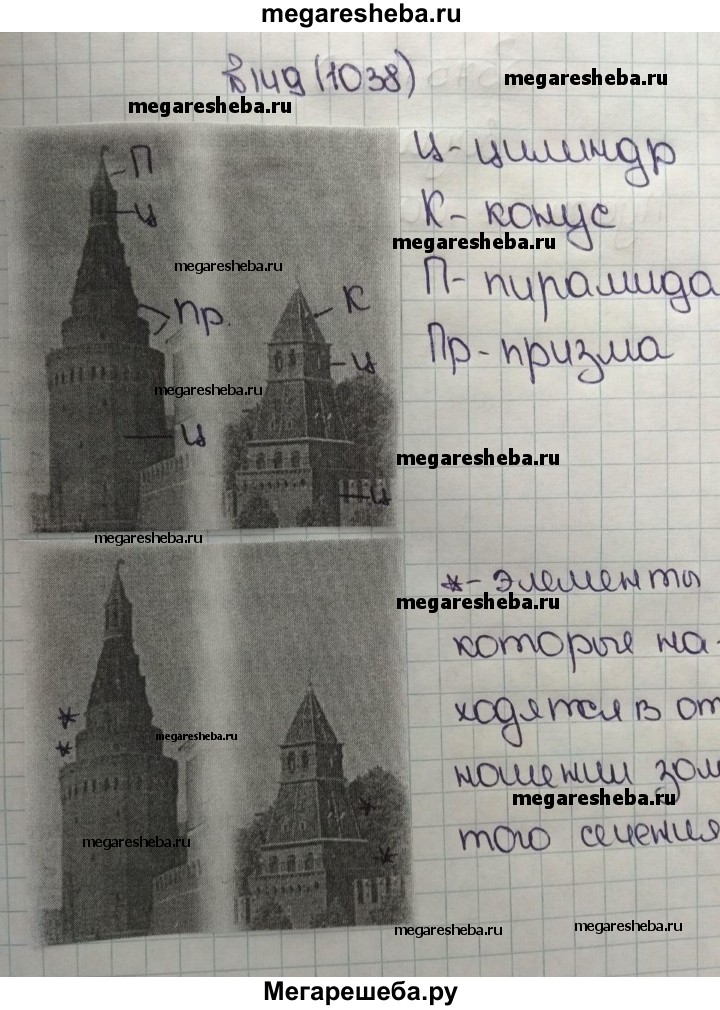 megaresheba.ru
В 149 (1038)
megaresheba.ru
megaresheba.ru
П
Ц
Пр.
Ц
К
Ц
Ц
Ц - цилиндр
К - конус
megaresheba.ru
П - пирамида
Пр - призма
megaresheba.ru
megaresheba.ru
megaresheba.ru
megaresheba.ru
* - элементы
megaresheba.ru
которые на-
ходятся в от
ношении золо
того сечения
* * * *
megaresheba.ru
megaresheba.ru
megaresheba.ru
megaresheba.ru
megaresheba.ru
Мегарешеба.ру